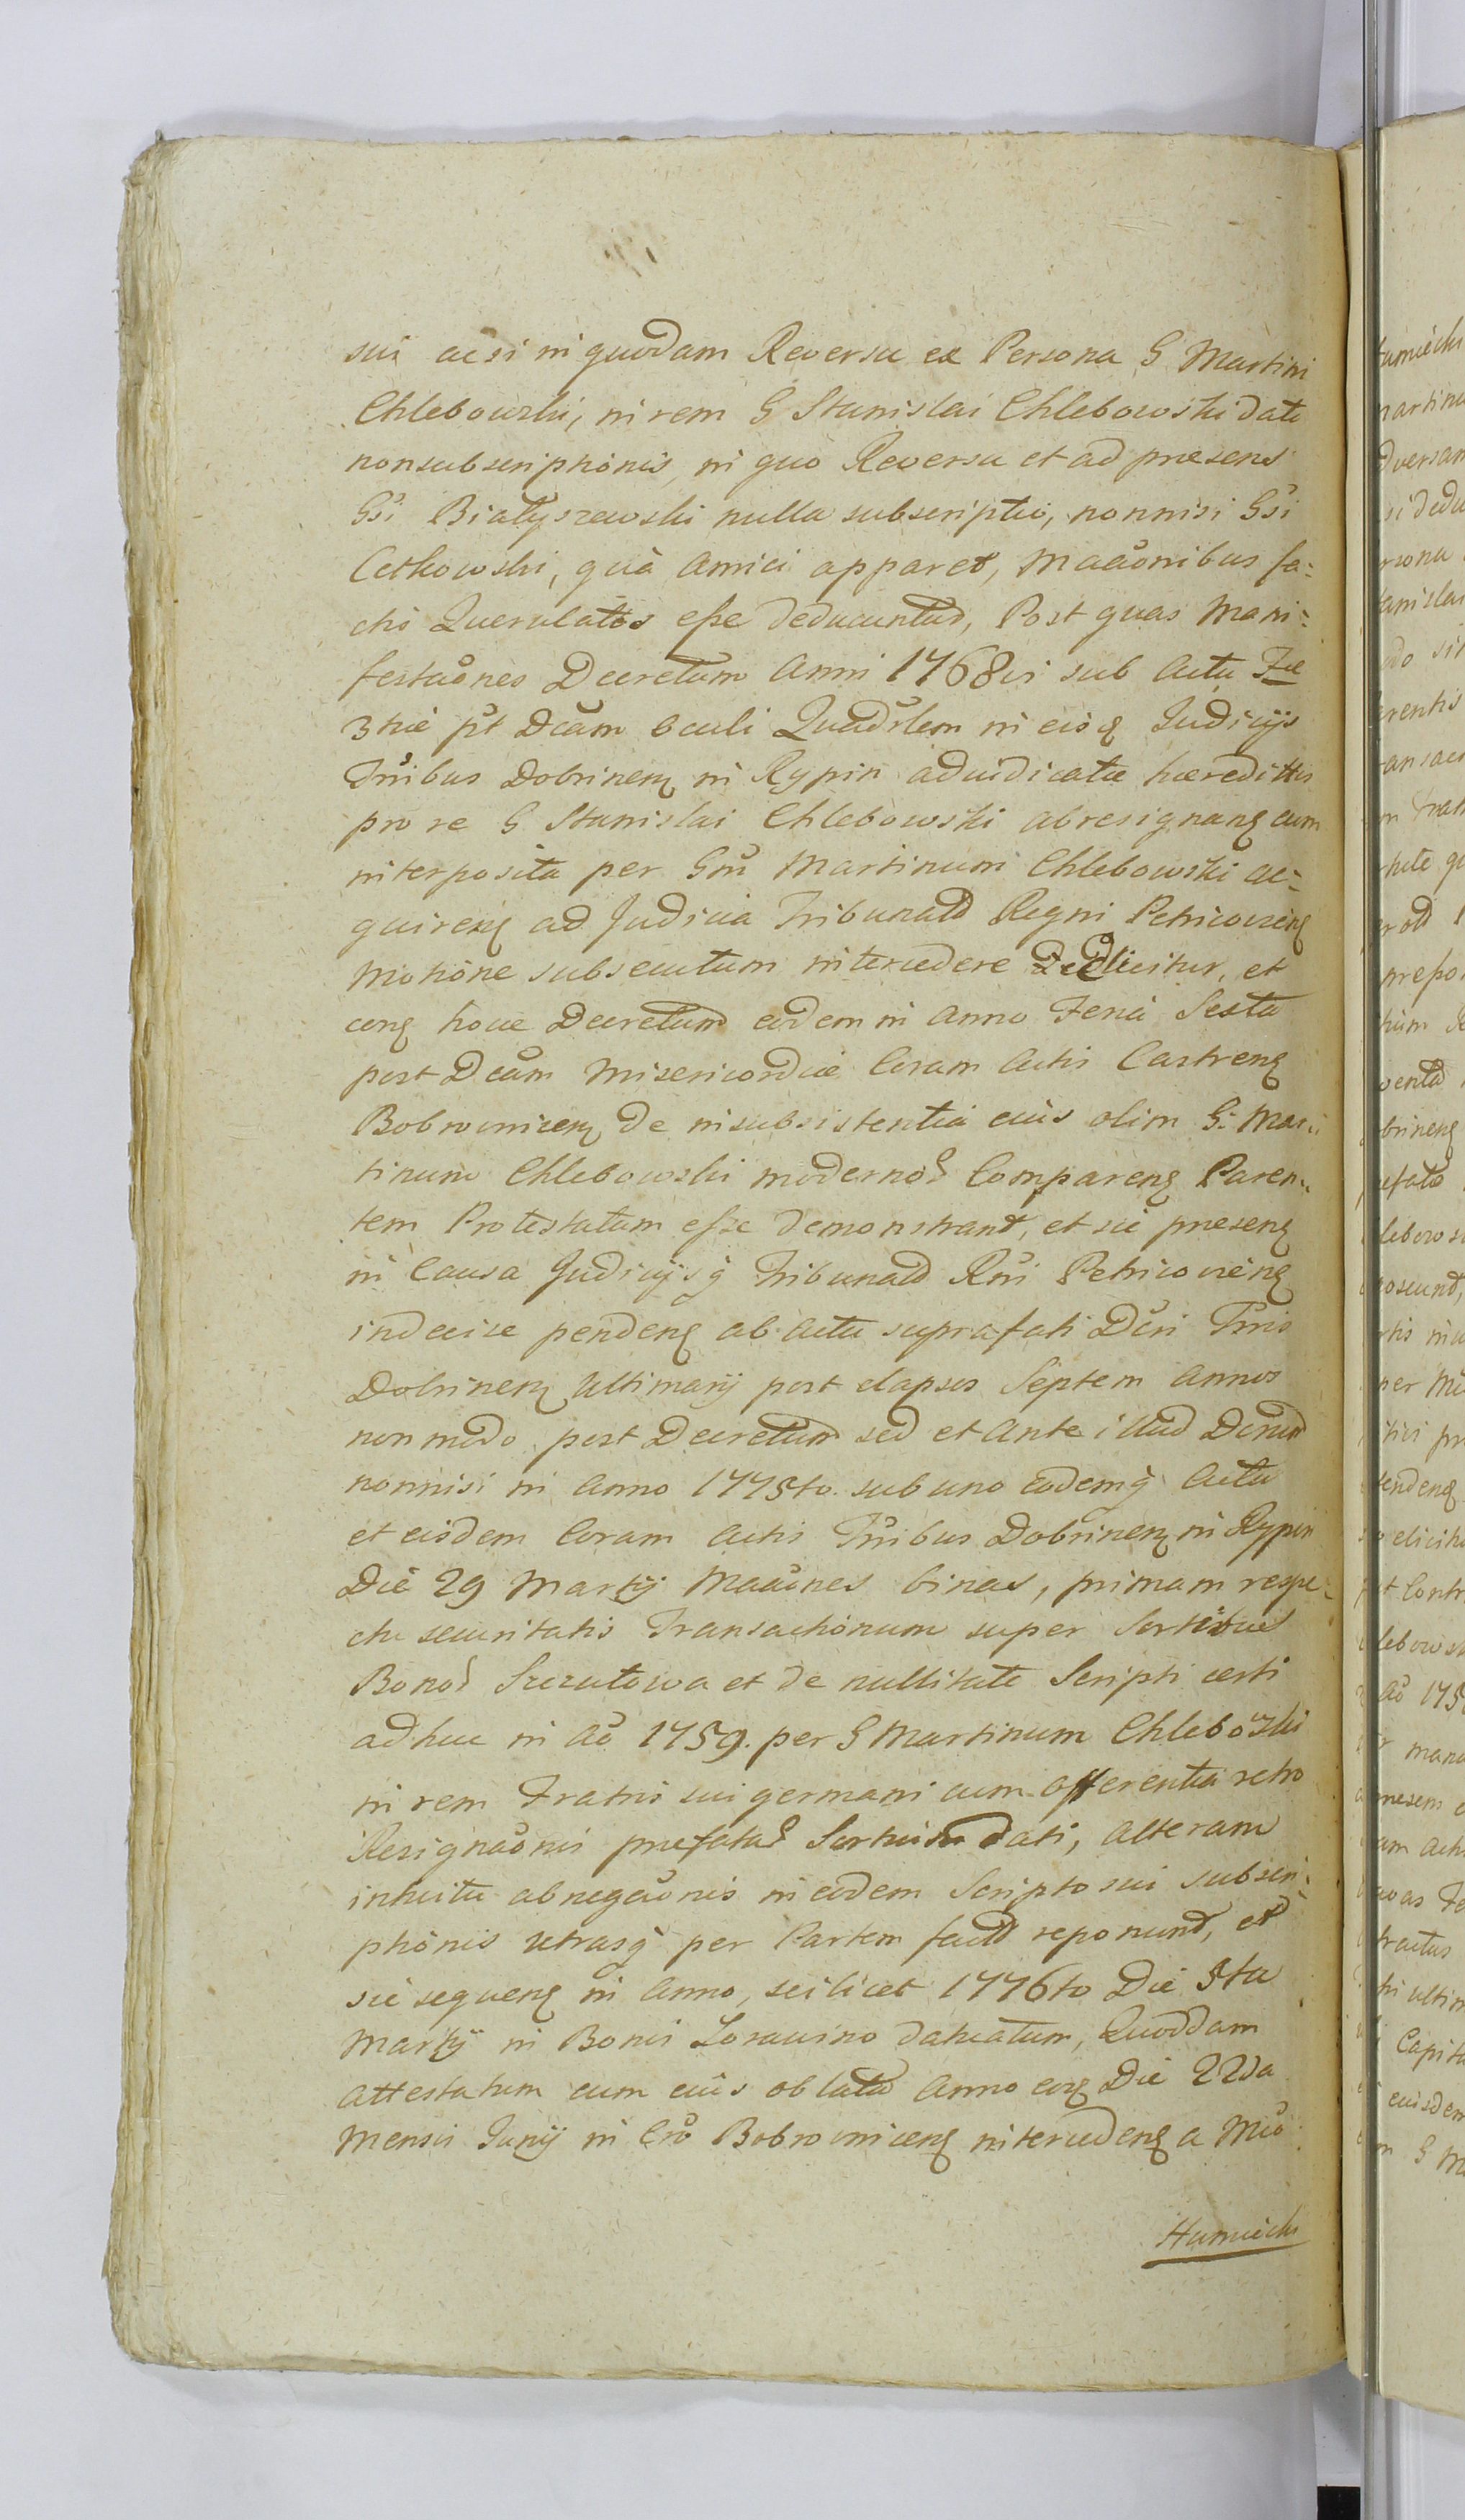 sui acsi in quodam Reversu ex Persona G Martini
Chlebowski, in rem G Stanislai Chlebowski dati
nonsubscriptionis, in quo Reversu et ad praesens
Gsi Białyszewski nulla subscriptio, nonnisi Gsi
Cetkowski, quà Amici apparet, Maãonibus fa=
cti Querulatos esse deducuntur, Post quas Mani=
festaõnes Decretum Anni 1768vi sub Actu Fae
3tiae pt Dcam Oculi Quadrlem in eisq Judicijs
Trribus Dobrinen in Rypin adiudicatae haereditis
pro re G Stanislai Chlebowski abresignanq cum
interposita per Gm Martinum Chlebowski ac=
quirenq ad Judicia Tribunald Regni Petricovienq
Motione subsecutum intercedere Dedlicitur, et
cong hocce Decretum eodem in Anno Feria Sexta
post Dcam Misericordiae Coram Actis Castrenq
Bobrownicen de insubsistentia eius olim G. Mar=
tinum Chlebowski modernor Comparenq Paren=
tem Protestatum esse demonstrant, et sic praesenq
in Causa Judicijsq Tribunald Rni Petricovienq
indecise pendenq ab actu suprafati Dcri Trris
Dobrinen Ultimarij post elapsos Septem Annos
non modo post Decretum sed et Ante illud Demum
nonnisi in Anno 1775to. sub uno eodemq Actu
et eisdem Coram Actis Trribus Dobrinen in Rypin
Die 29 Martij Maãones binas, primam respe=
ctu securitatis Transactionum super Sortibus
Bonor Szczutowa et de nullitate Scripti certi
adhuc in Aõ 1759. per G Martinum Chlebowski
in rem Fratris sui germani cum offerentia retro
Resignaõnis praefatar Sortium dati, alteram
intuitu abnegaõnis in eodem Scripto sui subscri=
ptionis utrasq per Partem factd reponunt, et
sic sequenq in Anno, scilicet 1776to Die 5ta
Martij in Bonis datiatum, Quoddam
Attestatum cum eius oblata Anno eoq Die 22da
Mensis Junij in Cro Bobrownicenq intercedenq a Mco
Humiecki